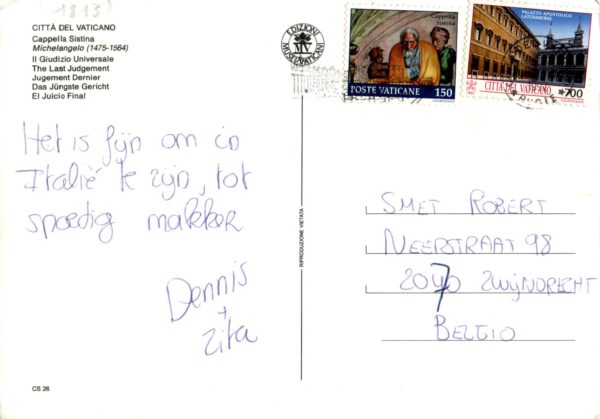 1813
CITTÀ DEL VATICANO
Cappella Sistina
Michelangelo (1475-1564)
Il Giudizio Universale
The Last Judgement
Jugement Dernier
Das Jüngste Gericht
El Juicio Final
EDIZIONI
MUSEI VATICANI
Cappella
Sistina
POSTE VATICANE 150
PALAZZO APOSTOLICO
LATERANENSE
CITTÀ DEL VATICANO
700
Het is fijn om in
Italië te zijn, tot
spoedig makker
Dennis
+
Zita
RIPRODUZIONE VIETATA
SMET ROBERT
NEERSTRAAT 98
2070 ZWIJNDRECHT
BELGIO
CS 26